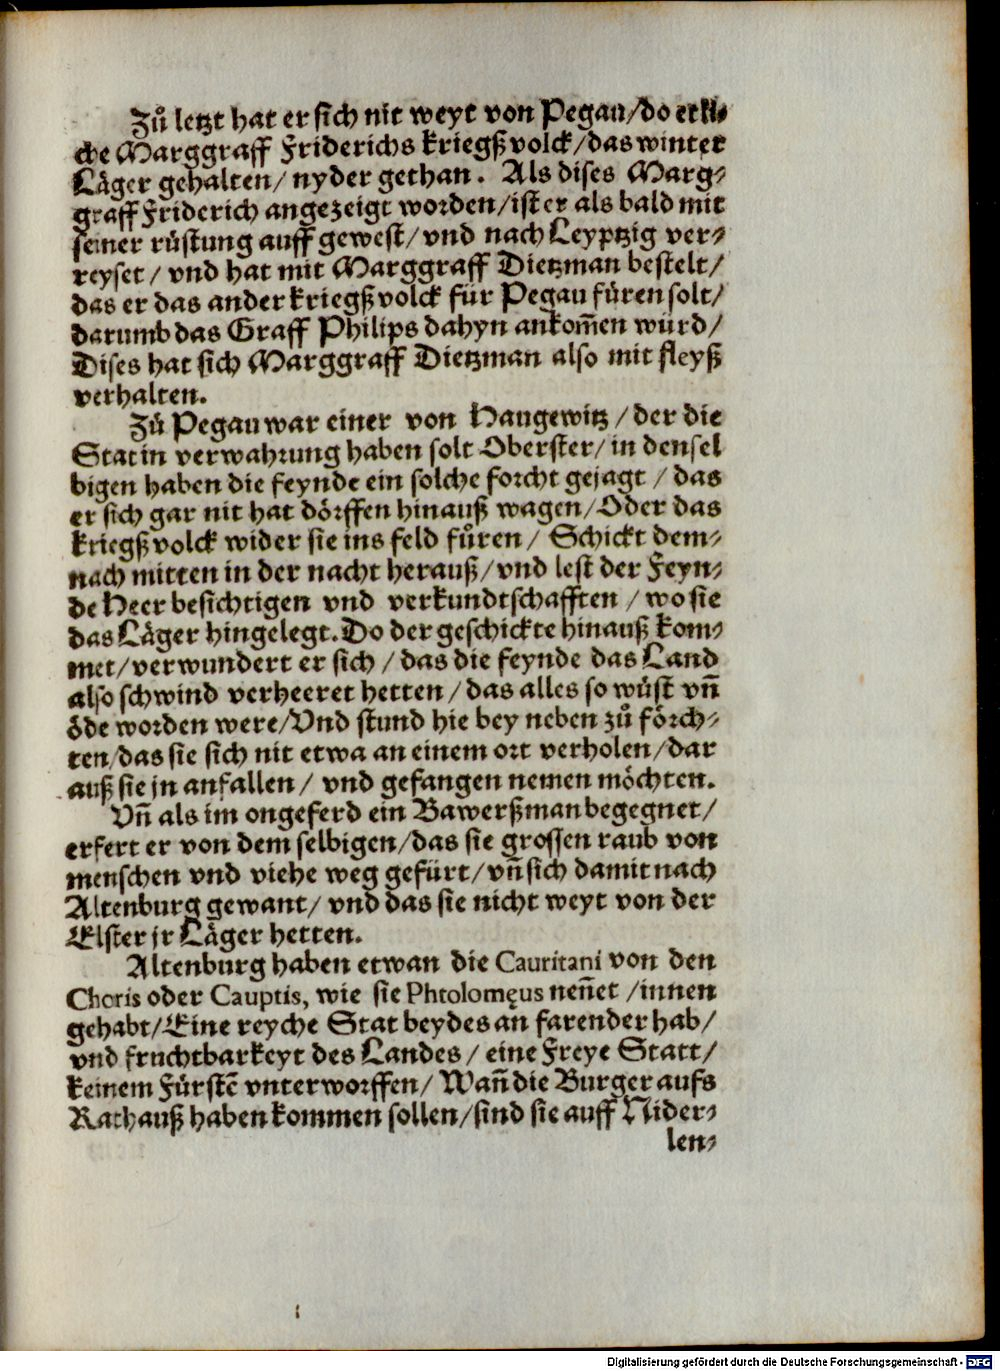 Zů letzt hat er sich nit weyt von Pegau/do etli⸗
che Marggraff Friderichs kriegß volck/das winter
Läger gehalten/ nyder gethan. Als dises Marg⸗
graff Friderich angezeigt worden/ist er als bald mit
seiner rüstung auff gewest/ vnd nach Leyptzig ver⸗
reyset/ vnd hat mit Marggraff Dietzman bestelt/
das er das ander kriegß volck für Pegau füren solt/
darumb das Graff Philips dahyn ankom̄en würd/
Dises hat sich Marggraff Dietzman also mit fleyß
verhalten.
Zů Pegau war einer von Haugewitz/der die
Stat in verwahrung haben solt Oberster/in densel
bigen haben die feynde ein solche forcht gejagt/das
er sich gar nit hat dörffen hinauß wagen/Oder das
kriegß volck wider sie ins feld füren/ Schickt dem⸗
nach mitten in der nacht herauß/vnd lest der Feyn⸗
de Heer besichtigen vnd verkundtschafften/wo sie
das Läger hingelegt. Do der geschickte hinauß kom⸗
met/verwundert er sich/das die feynde das Land
also schwind verheeret hetten/das alles so wüst vn̄
öde worden were/Vnd stund hie bey neben zů förch⸗
ten/das sie sich nit etwa an einem ort verholen/dar
auß sie jn anfallen/ vnd gefangen nemen möchten.
Vn̄ als im ongeferd ein Bawerßman begegnet/
erfert er von dem selbigen/das sie grossen raub von
menschen vnd viehe weg gefürt/vn̄ sich damit nach
Altenburg gewant/ vnd das sie nicht weyt von der
Elster jr Läger hetten.
Altenburg haben etwan die Cauritani von den
Choris oder Cauptis, wie sie Phtolomęus nen̄et/innen
gehabt/Eine reyche Stat beydes an farender hab/
vnd fruchtbarkeyt des Landes/eine Freye Statt/
keinem Fürstē vnterworffen/ Wan̄ die Burger aufs
Rathauß haben kommen sollen/sind sie auff Nider⸗
len⸗
Digitalisierung gefördert durch die Deutsche Forschungsgemeinschaft - DFG